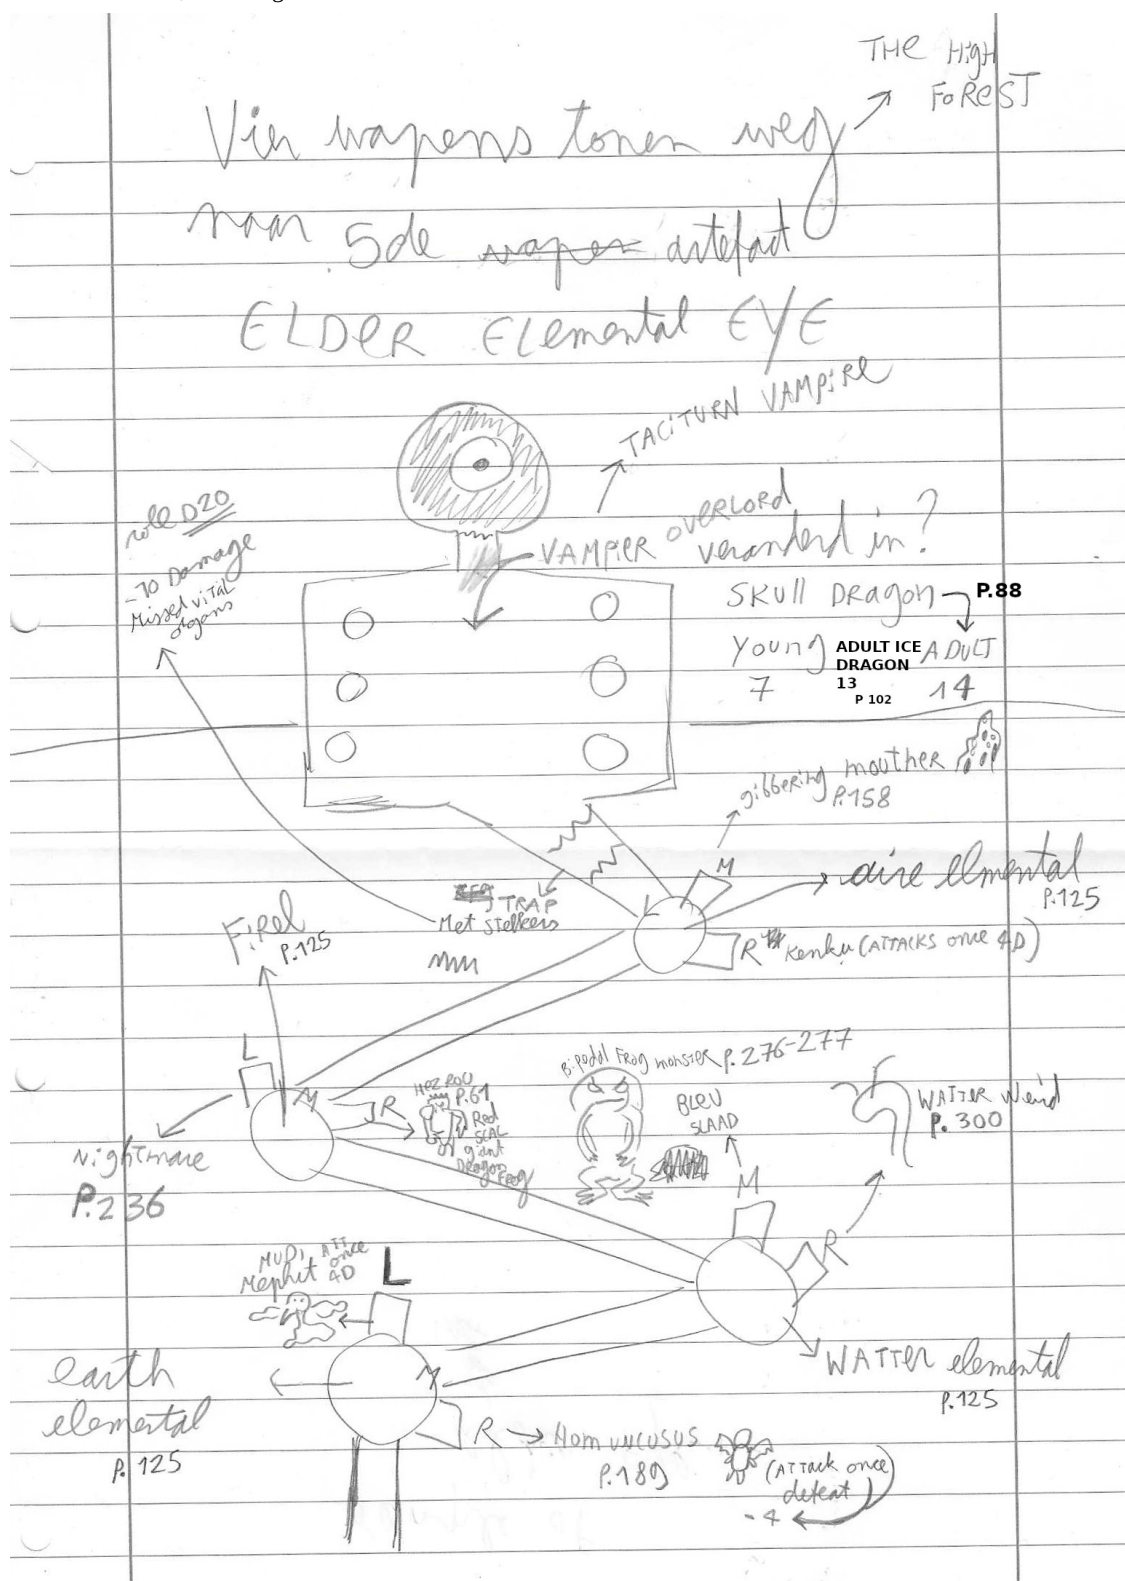 THE HigH
FoReST
Vier wapens tonen weg
naar 5de wapen artefact
ELDER Elemental EYE
TACiTURN VAMPiRE
role D20
-10 Damage
Missed viTal
organs
VAMPIER OVERLORD
veranderd in?
SKUll DRagon P.88
Young ADULT ICE ADULT
DRAGON
7 13 14
P 102
gibbering mouther
P.158
M
aire elmental
P.125
TRAP
Met stekers
L
R Kenku (ATTACKS once 4D)
FiRel
P.125
L
M
R
HEZROU
P.61
Red
SCAL
giant
Dragon
FRog
Bi-pedal FRog monsteR P. 276-277
BLEU
SLAAD
M
WATTER Weird
P. 300
R
Nightmare
P.236
MUD, ATT
Mephit once
4D
L
M
earth
elemental
P. 125
WATTER elemental
P.125
R → HOMUNCUSUS
P.189
(ATTack once)
defeat
- 4